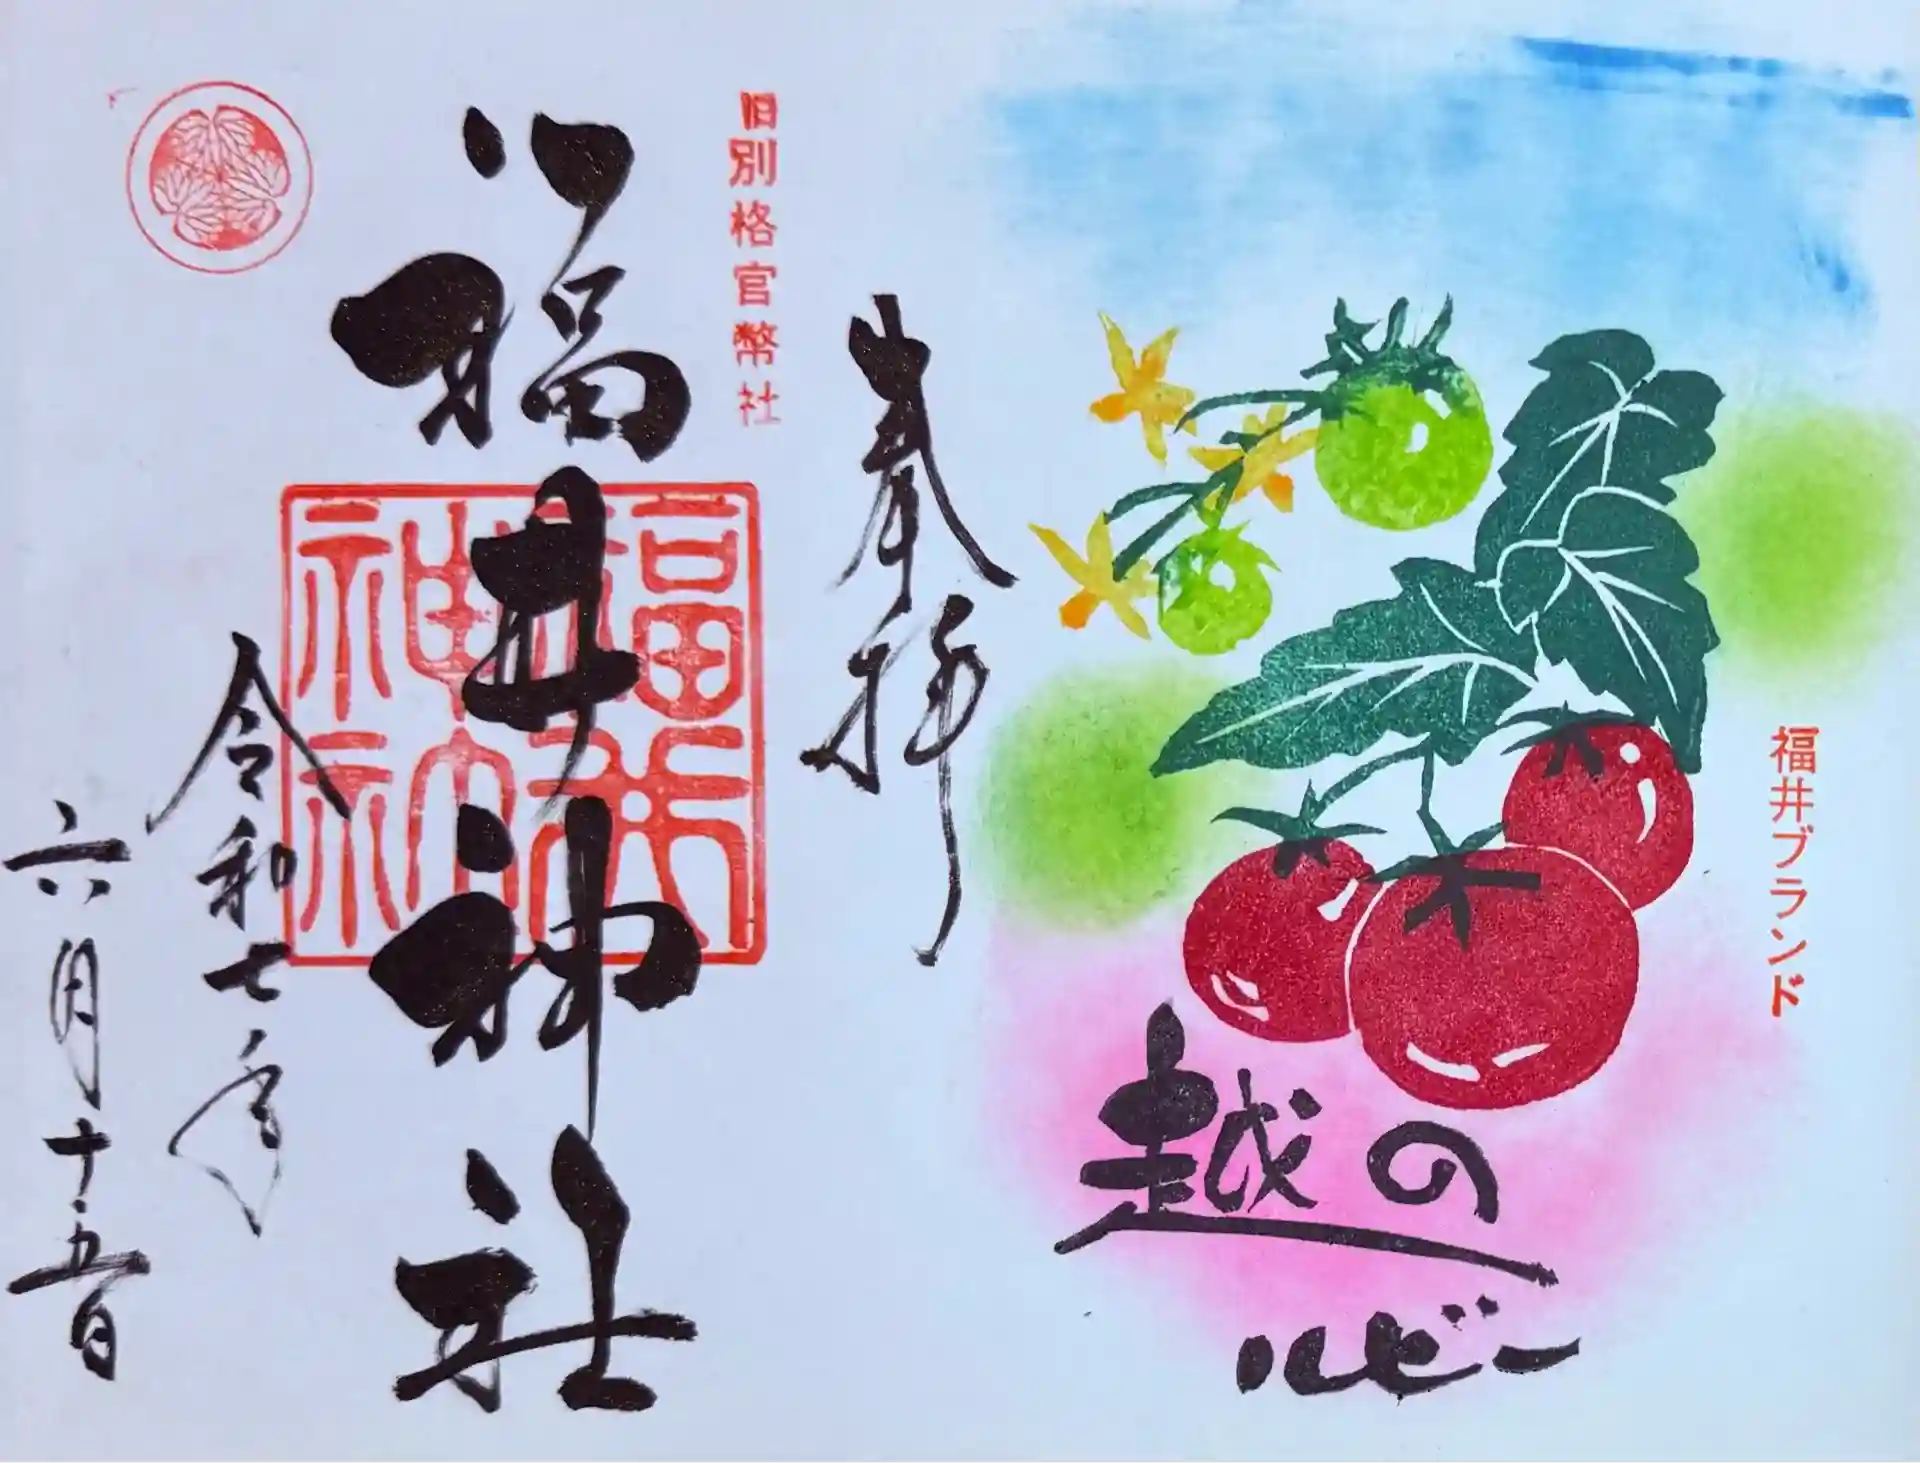 福井ブランド
越の
ルビー
奉拝
旧別格官幣社
福井神社
福井
神社
令和七年
六月十五日